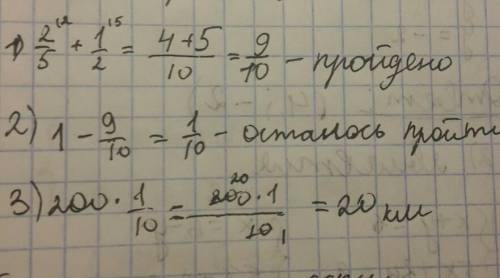 1) 2/5 \2 + 1/2 \5 = (4+5)/10 = 9/10 - пройдено
2) 1 - 9/10 = 1/10 - осталось пройти
3) 200 · 1/10 = (200 20 · 1)/(10 1) = 20 км